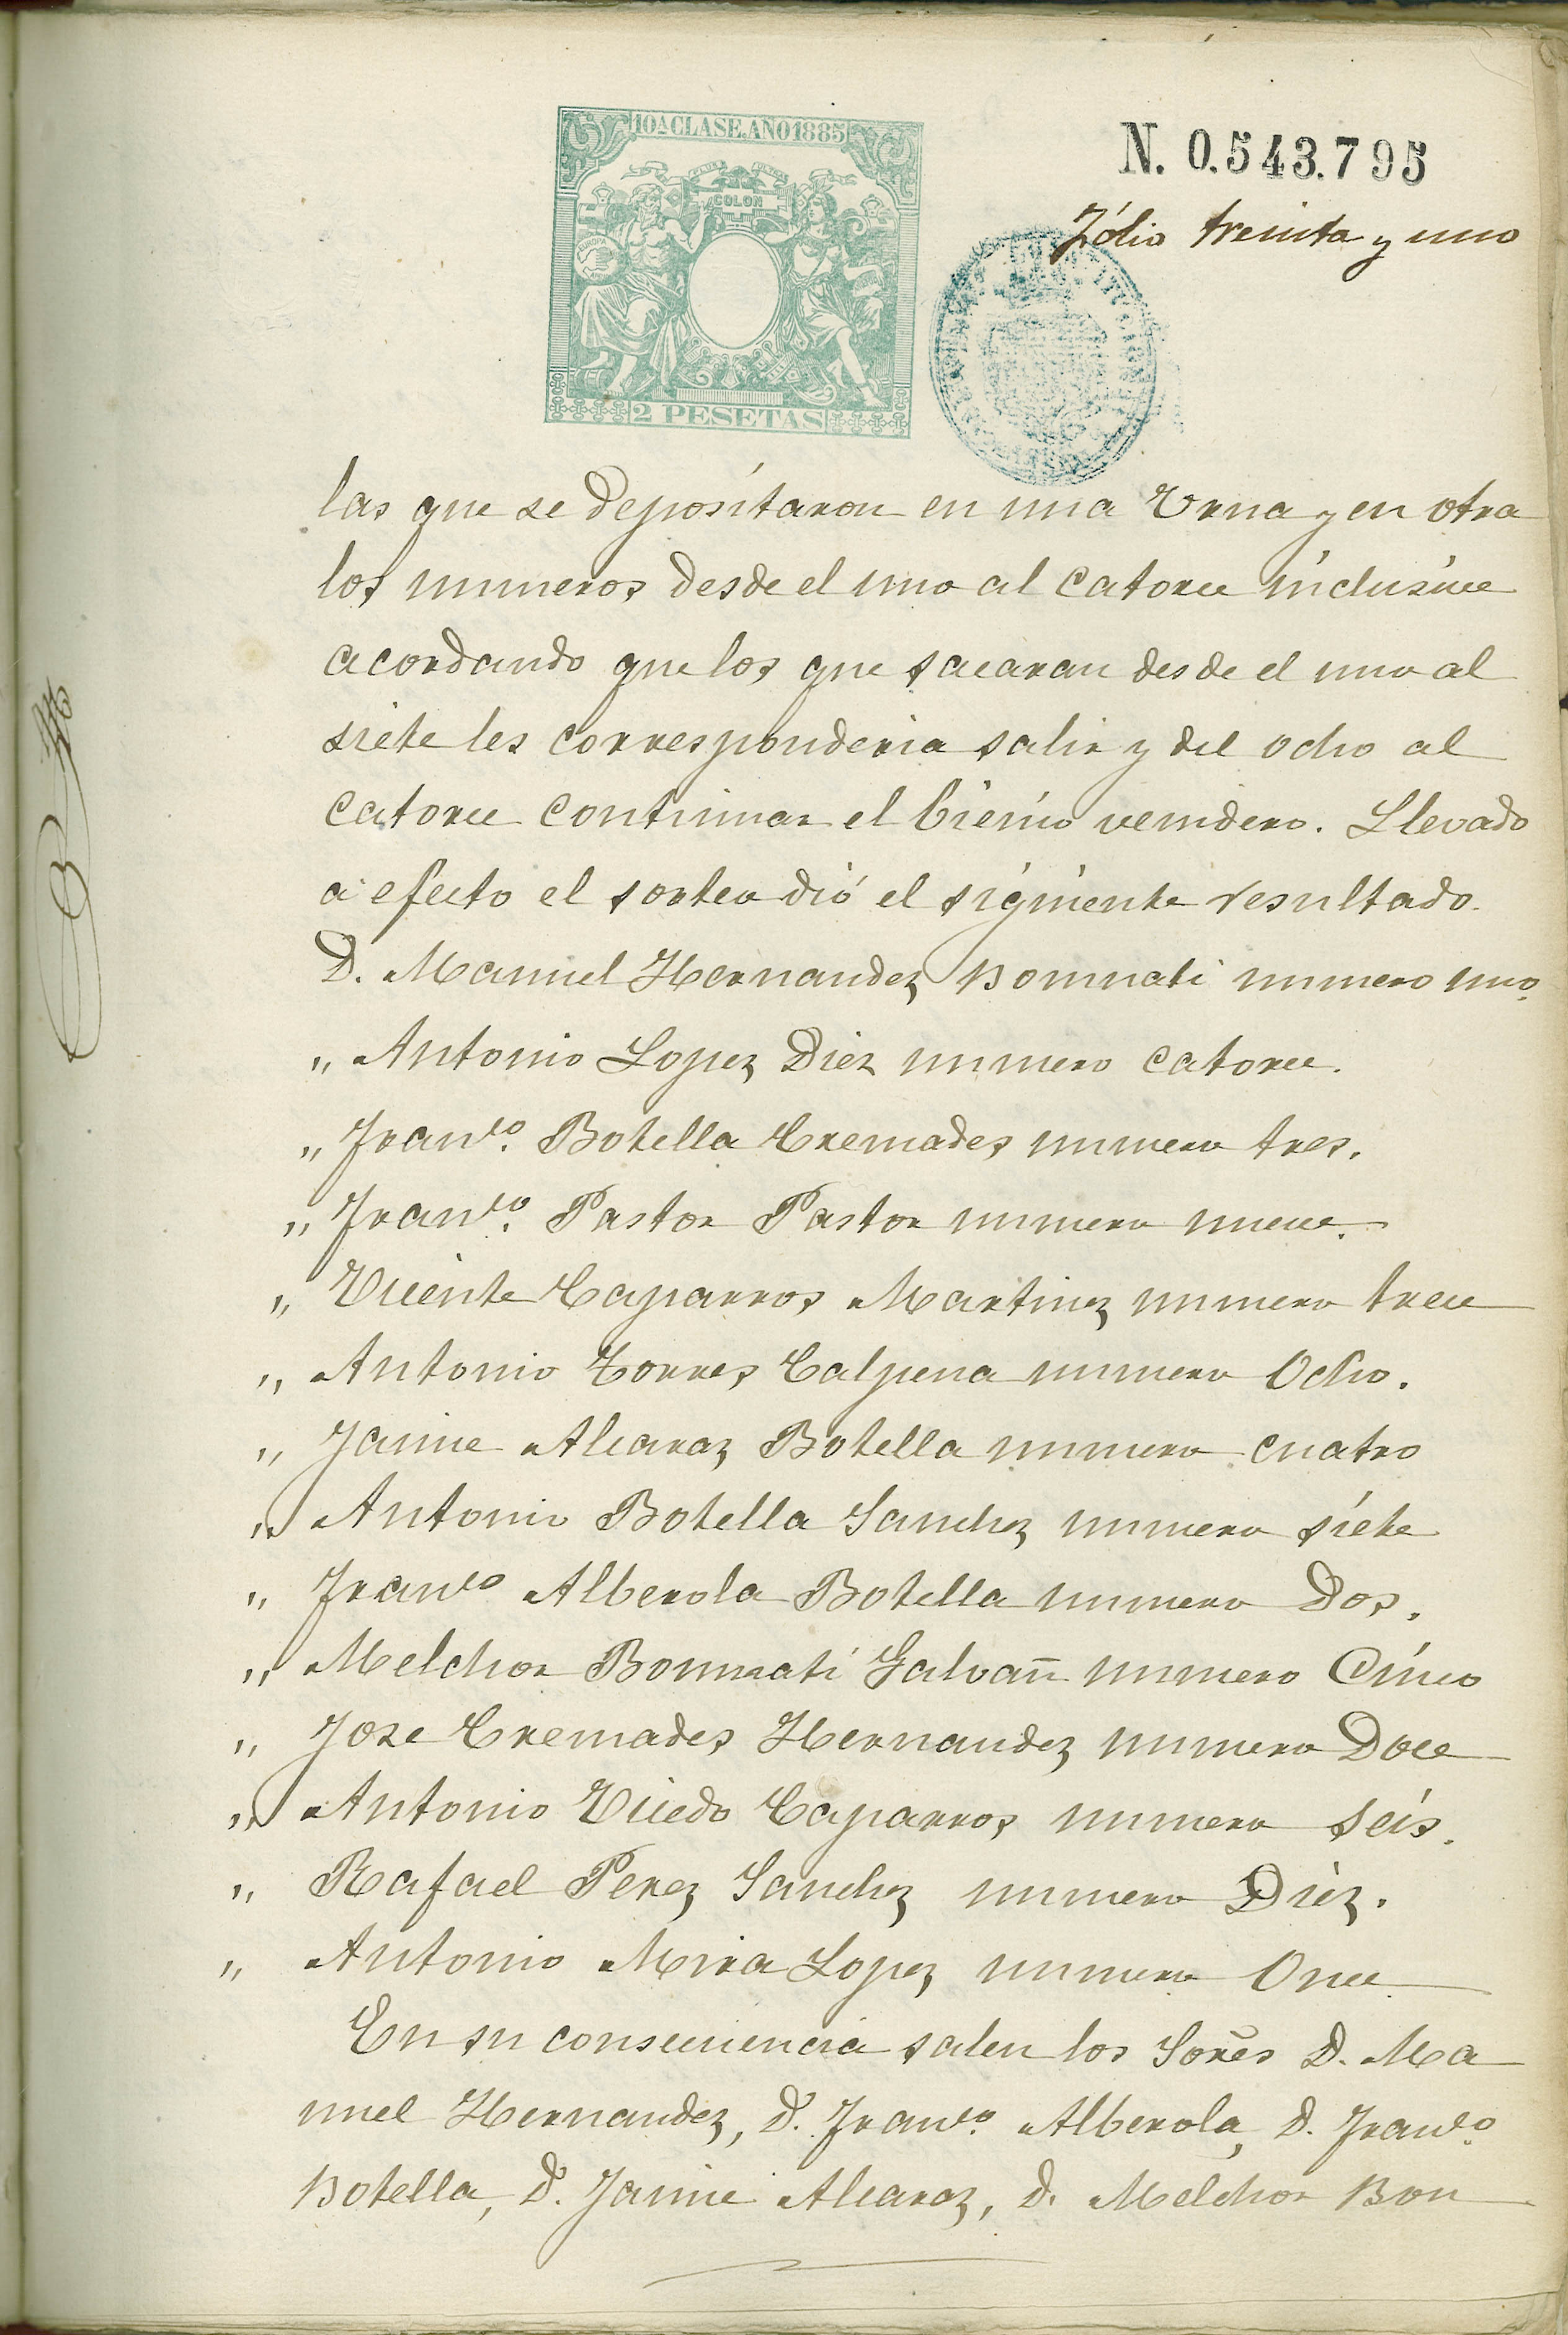 10ª CLASE. AÑO 1885
COLON
2 PESETAS
N. 0.543.795
Fólio treinta y uno
las que se depositaron en una Vrna y en otra
los numeros desde el uno al catorce inclusive
acordando que los que sacaran desde el uno al
siete les corresponderia salir y del ocho al
catorce continuar el bienio venidero. Llevado
a efecto el sorteo dió el siguiente resultado.
D. Manuel Hernandez Bonmati numero uno.
" Antonio Lopez Diez numero catorce.
" Franco. Botella Cremades numero tres.
" Franco. Pastor Pastor numero nueve.
" Vicente Caparros Martinez numero trece
" Antonio Torres Calpena numero Ocho.
" Jaime Alcaraz Botella numero cuatro
" Antonio Botella Sanchez numero siete
" Franco Alberola Botella numero Dos.
" Melchor Bonmati Galvañ numero Cinco
" Jose Cremades Hernandez numero Doce
" Antonio Vicedo Caparros numero seis.
" Rafael Perez Sanchez numero Diez.
" Antonio Mira Lopez numero Once
En su consecuencia salen los Sores D. Ma
nuel Hernandez, D. Franco. Alberola, D. Franco.
Botella, D. Jaime Alcaraz, D. Melchor Bon